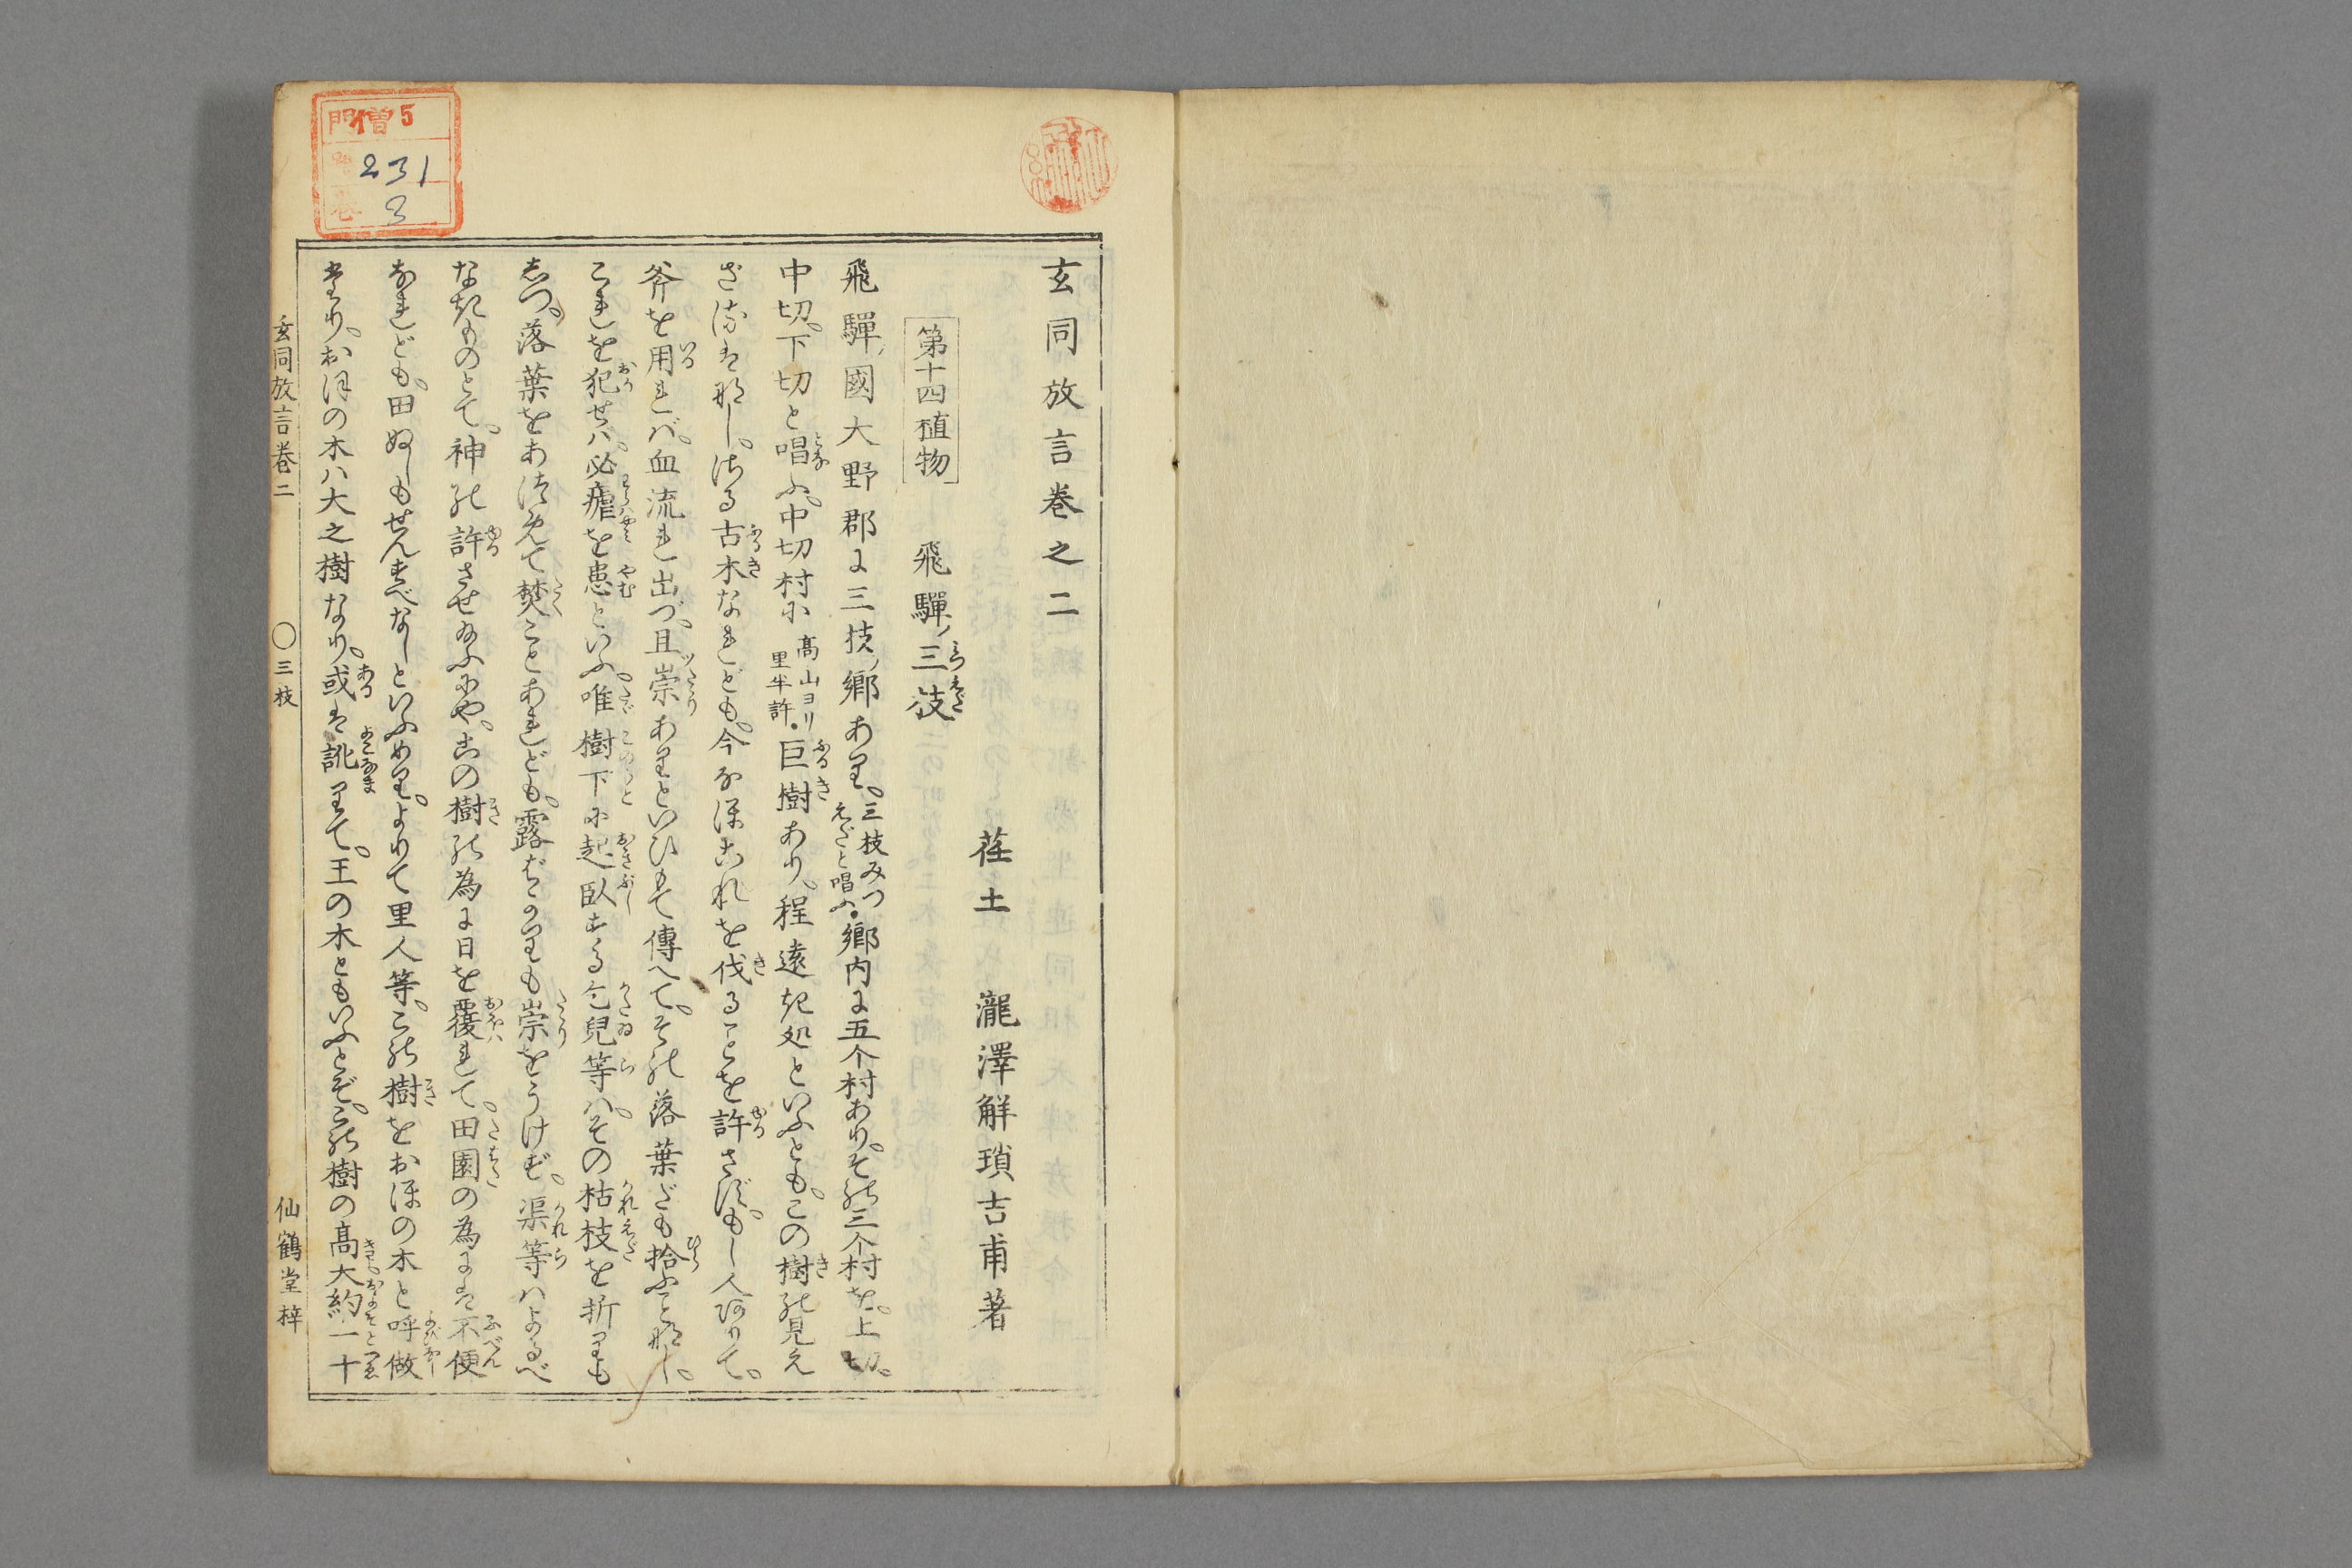 玄同放言巻之二
荏土　瀧澤解瑣吉甫著
第十四植物　飛驒ノ三枝
飛驒ノ國大野郡に三枝ノ郷あり。三枝みつえだと唱ふ。郷内に五个村あり。その三个村を。上切。
中切。下切と唱ふ。中切村に高山ヨリ里半許。巨樹あり。程遠き処といふとも。この樹の見え
ざるは那し。さる古木なれども。今なほこれを伐ることを許さず。もし人ありて。
斧を用れバ。血流れ出づ。且ツ祟ありといひもて傳へて。その落葉だも拾ふこと那し。
これを犯せバ。必瘧を患といふ。唯樹下に起臥する乞兒等ハ。その枯枝を折りも
しつ。落葉をあつめて焚ことあれども。露ばかりも祟をうけず。渠等ハよるべ
なきものとて。神の許させ給ふにや。この樹の為に日を覆れて。田園の為には不便
なれども。田ぬしもせんすべなしといふめり。よりて里人等。この樹をおほの木と呼做
たり。おほの木ハ大之樹なり。或は訛りて。王の木ともいふとぞ。この樹の高大約一十
玄同放言巻二　〇三枝　仙鶴堂梓
門僧5
231
3